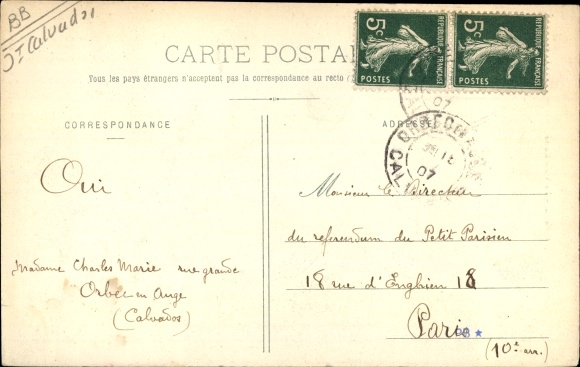 BB
Calvados
CARTE POSTA
Tous les pays étrangers n'acceptent pas la correspondance au recto
5c
REPUBLIQUE FRANÇAISE
POSTES
5c
REPUBLIQUE FRANÇAISE
POSTES
CORRESPONDANCE
ADRESSE
07
ORBEC
CAL
07
Oui
Madame Charles Marie rue grande
Orbec en Auge
(Calvados)
Monsieur le Directeur
du referendum du Petit Parisien
18 rue d'Enghien 18
Paris
(10e arr.)